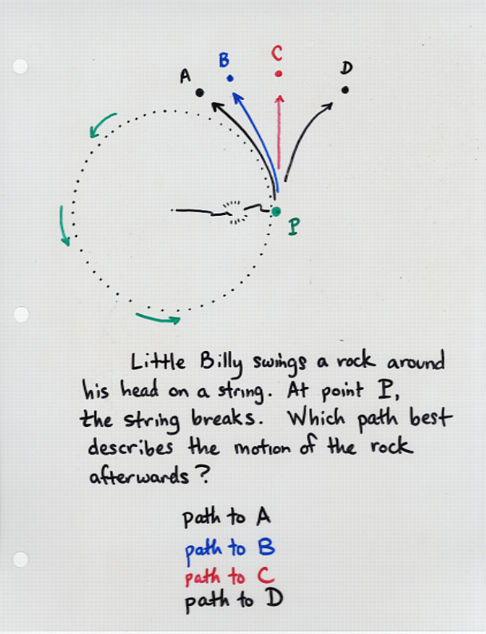 A
B
C
D
P
Little Billy swings a rock around
his head on a string. At point P,
the string breaks. Which path best
describes the motion of the rock
afterwards?
path to A
path to B
path to C
path to D